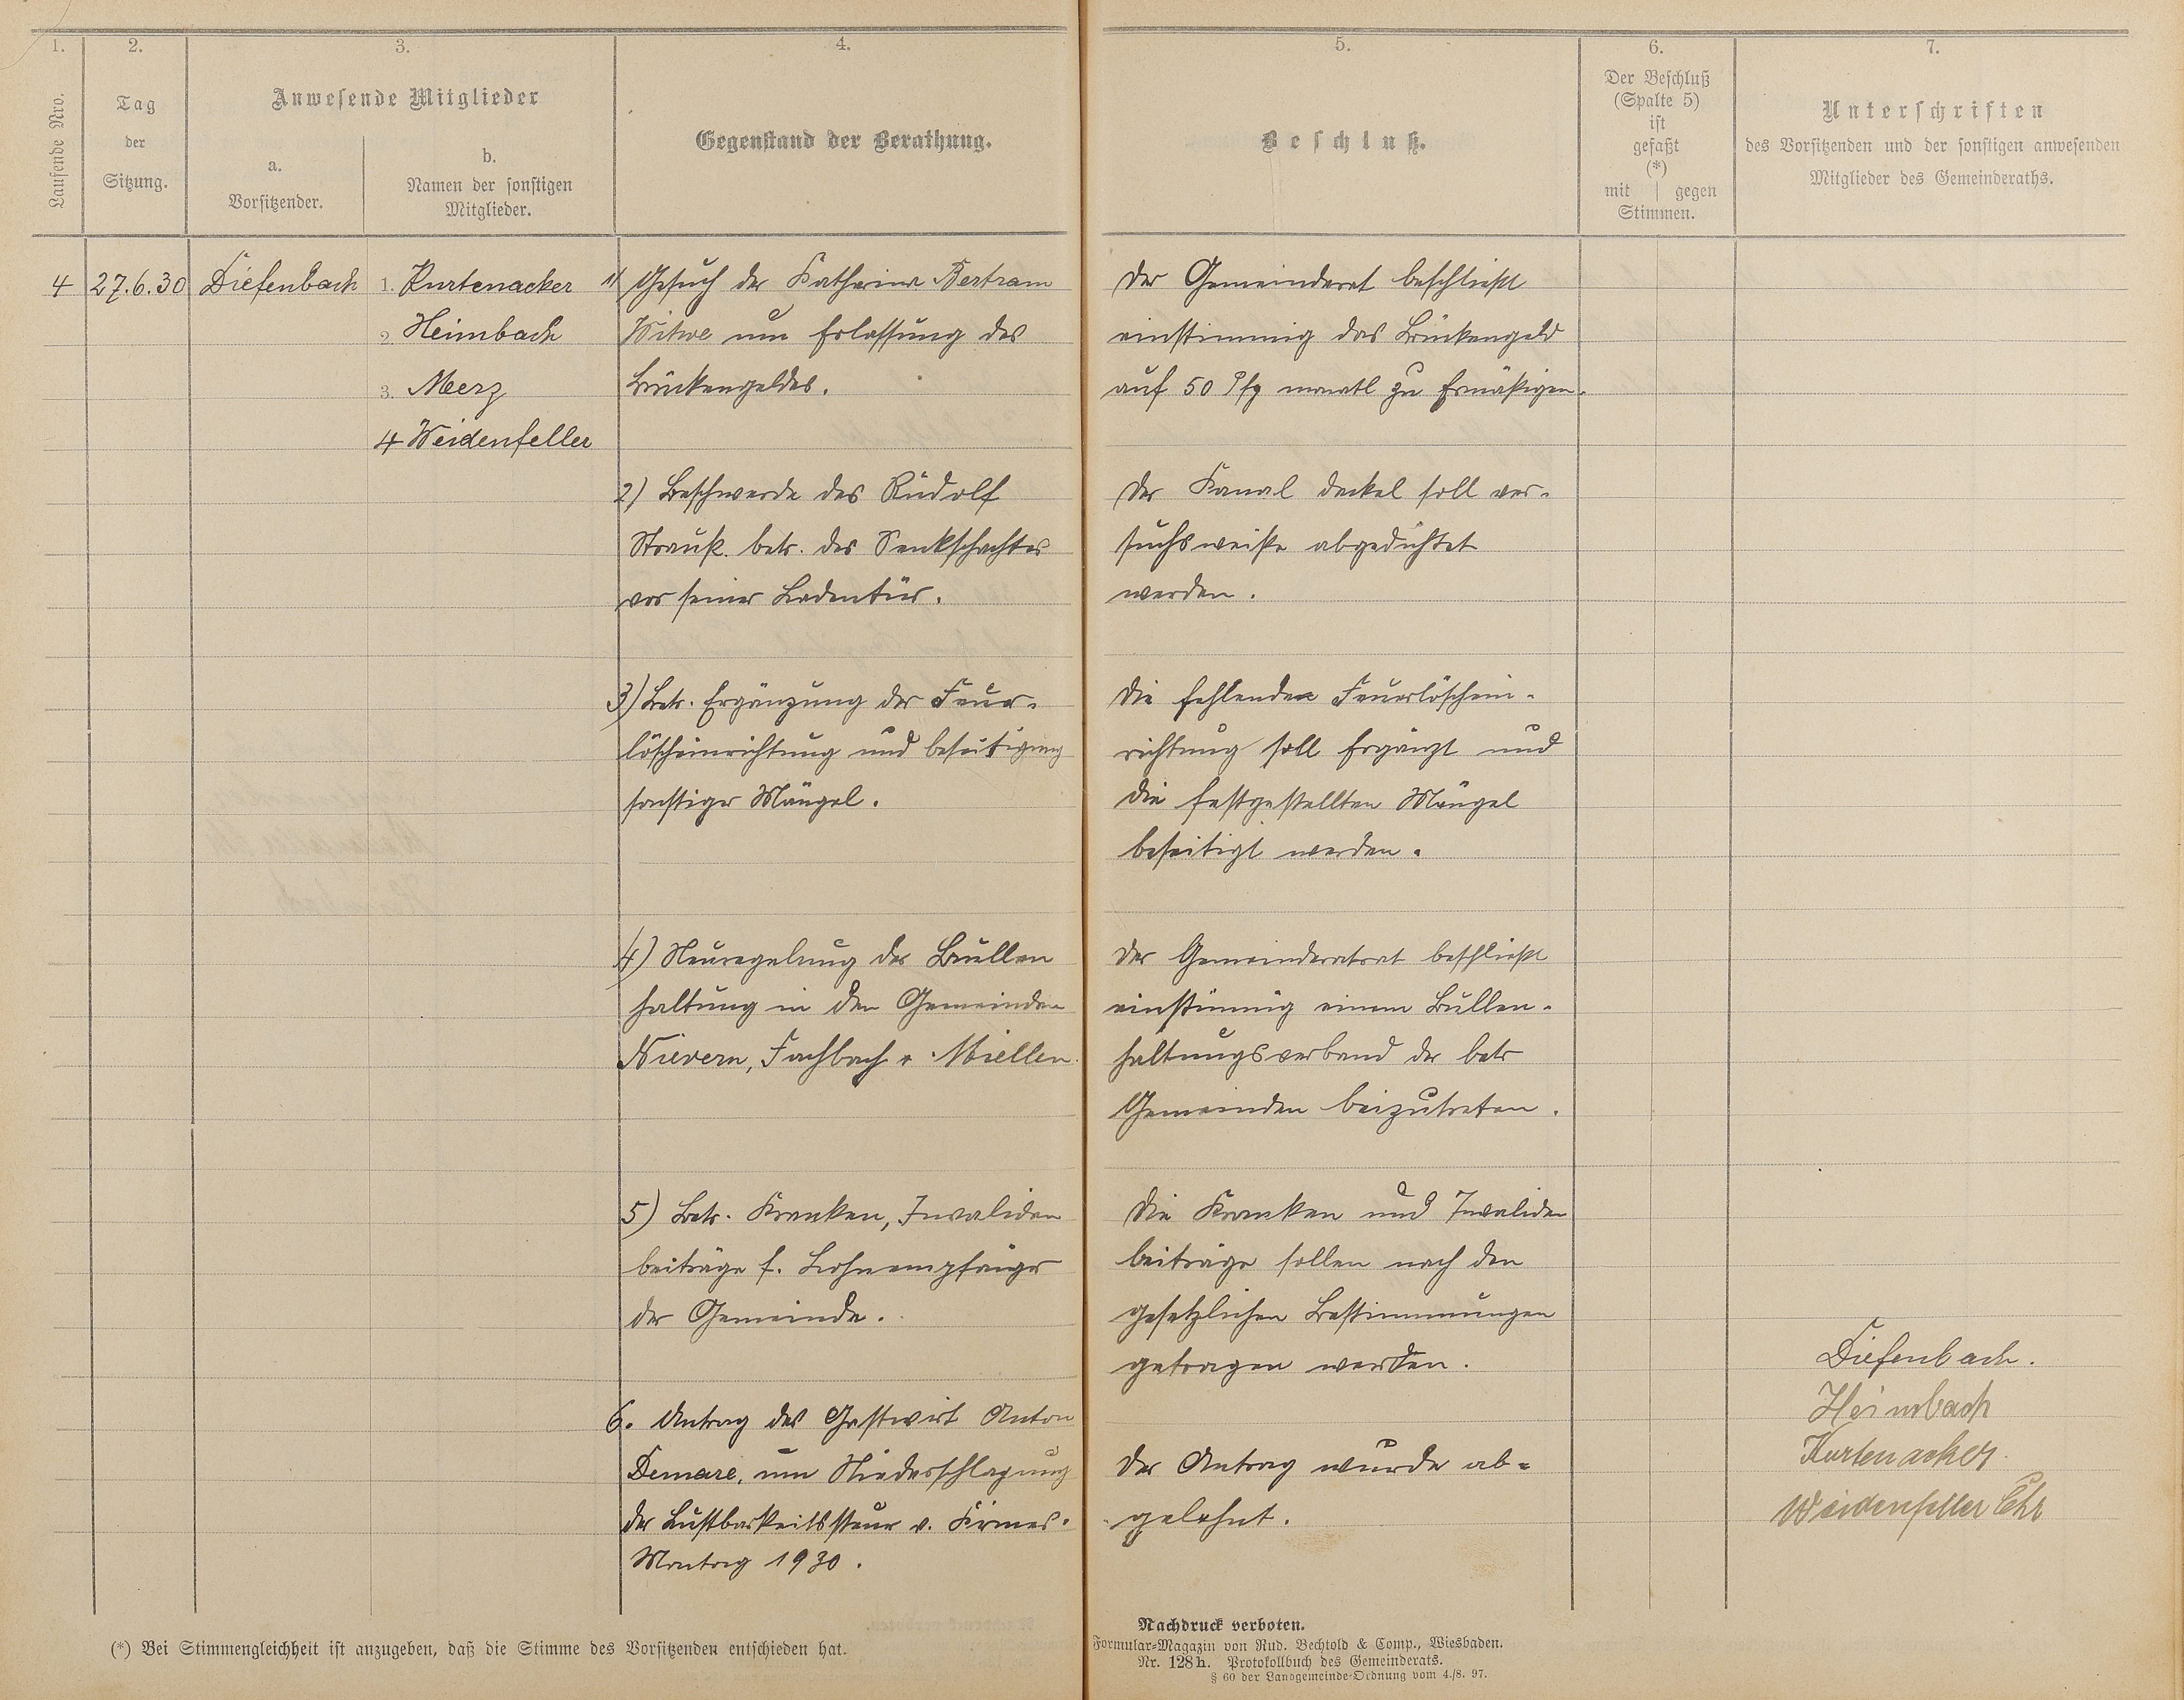 1.
2.
3.
4.
Laufende Nro.
Tag
der
Sitzung.
Anwesende Mitglieder
a.
Vorsitzender.
b.
Namen der sonstigen
Mitglieder.
Gegenstand der Berathung.
5.
6.
7.
Beschluß.
Der Beschluß
(Spalte 5)
ist
gefaßt
(*)
mit | gegen
Stimmen.
Unterschriften
des Vorsitzenden und der sonstigen anwesenden
Mitglieder des Gemeinderaths.
4
27.6.30
Diefenbach
1. Kurtenacker
2. Heimbach
3. Merz
4 Weidenfeller
1) Gesuch der Katharina Bertram
Witwe um Erlassung des
Brückengeldes.
Der Gemeinderat beschließt
einstimmig das Brückengeld
auf 50 Pfg monatl zu Ermäßigen.
2) Beschwerde des Rudolf
Strauß. betr. des Senkschachtes
vor seiner Ladentür.
Der Kanal deckel soll ver-
suchsweiße abgedichtet
werden.
3) Betr. Ergänzung der Feuer-
löscheinrichtung und beseitigung
sonstiger Mängel.
Die fehlenden Feuerlöschein-
richtung soll Ergänzt und
die festgestellten Mängel
beseitigt werden.
4) Neuregelung der Bullen
haltung in den Gemeinden
Nievern, Fachbach u. Miellen.
Der Gemeinderatrat beschließt
einstimmig einem Bullen-
haltungsverband der betr
Gemeinden beizutreten.
5) Betr. Kranken, Invaliden
beiträge f. Lohnempfänger
der Gemeinde.
Die Kranken und Invaliden
beiträge sollen nach den
gesetzlichen Bestimmungen
getragen werden.
6. Antrag des Gastwirt Anton
Demare, um Niederschlagung
der Lustbarkeitssteuer v. Kirmes-
Montag 1930.
Der Antrag wurde ab-
gelehnt.
Diefenbach.
Heimbach
Kurtenacker
Weidenfeller Chr
(*) Bei Stimmengleichheit ist anzugeben, daß die Stimme des Vorsitzenden entschieden hat.
Nachdruck verboten.
Formular-Magazin von Rud. Bechtold & Comp., Wiesbaden.
Nr. 128h. Protokollbuch des Gemeinderats.
§ 60 der Landgemeinde-Ordnung vom 4./8. 97.